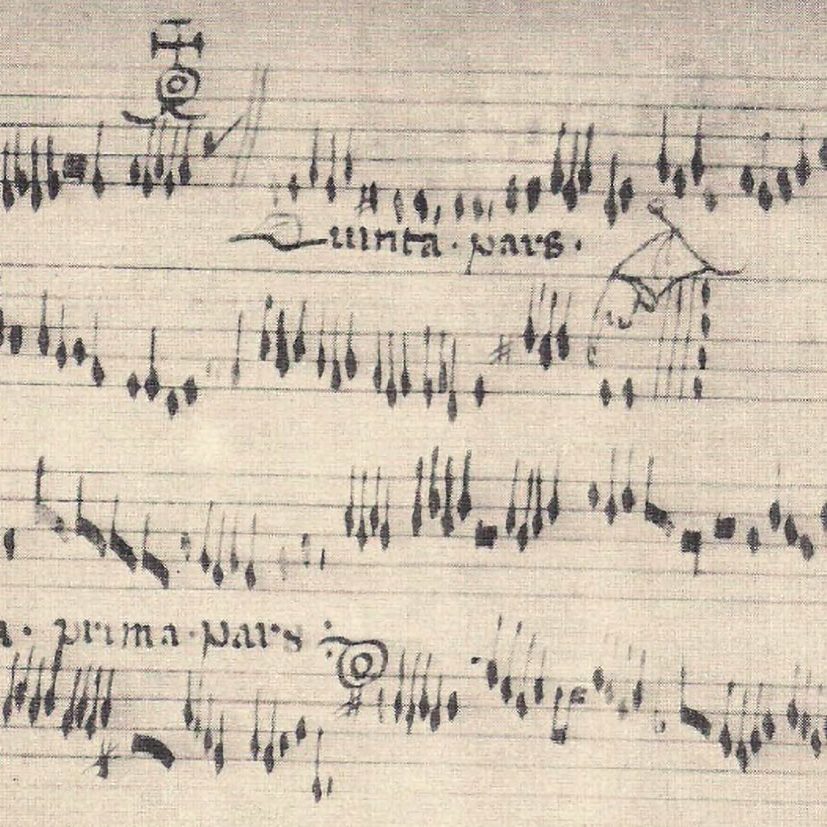 Quinta · pars ·
a · prima · pars :